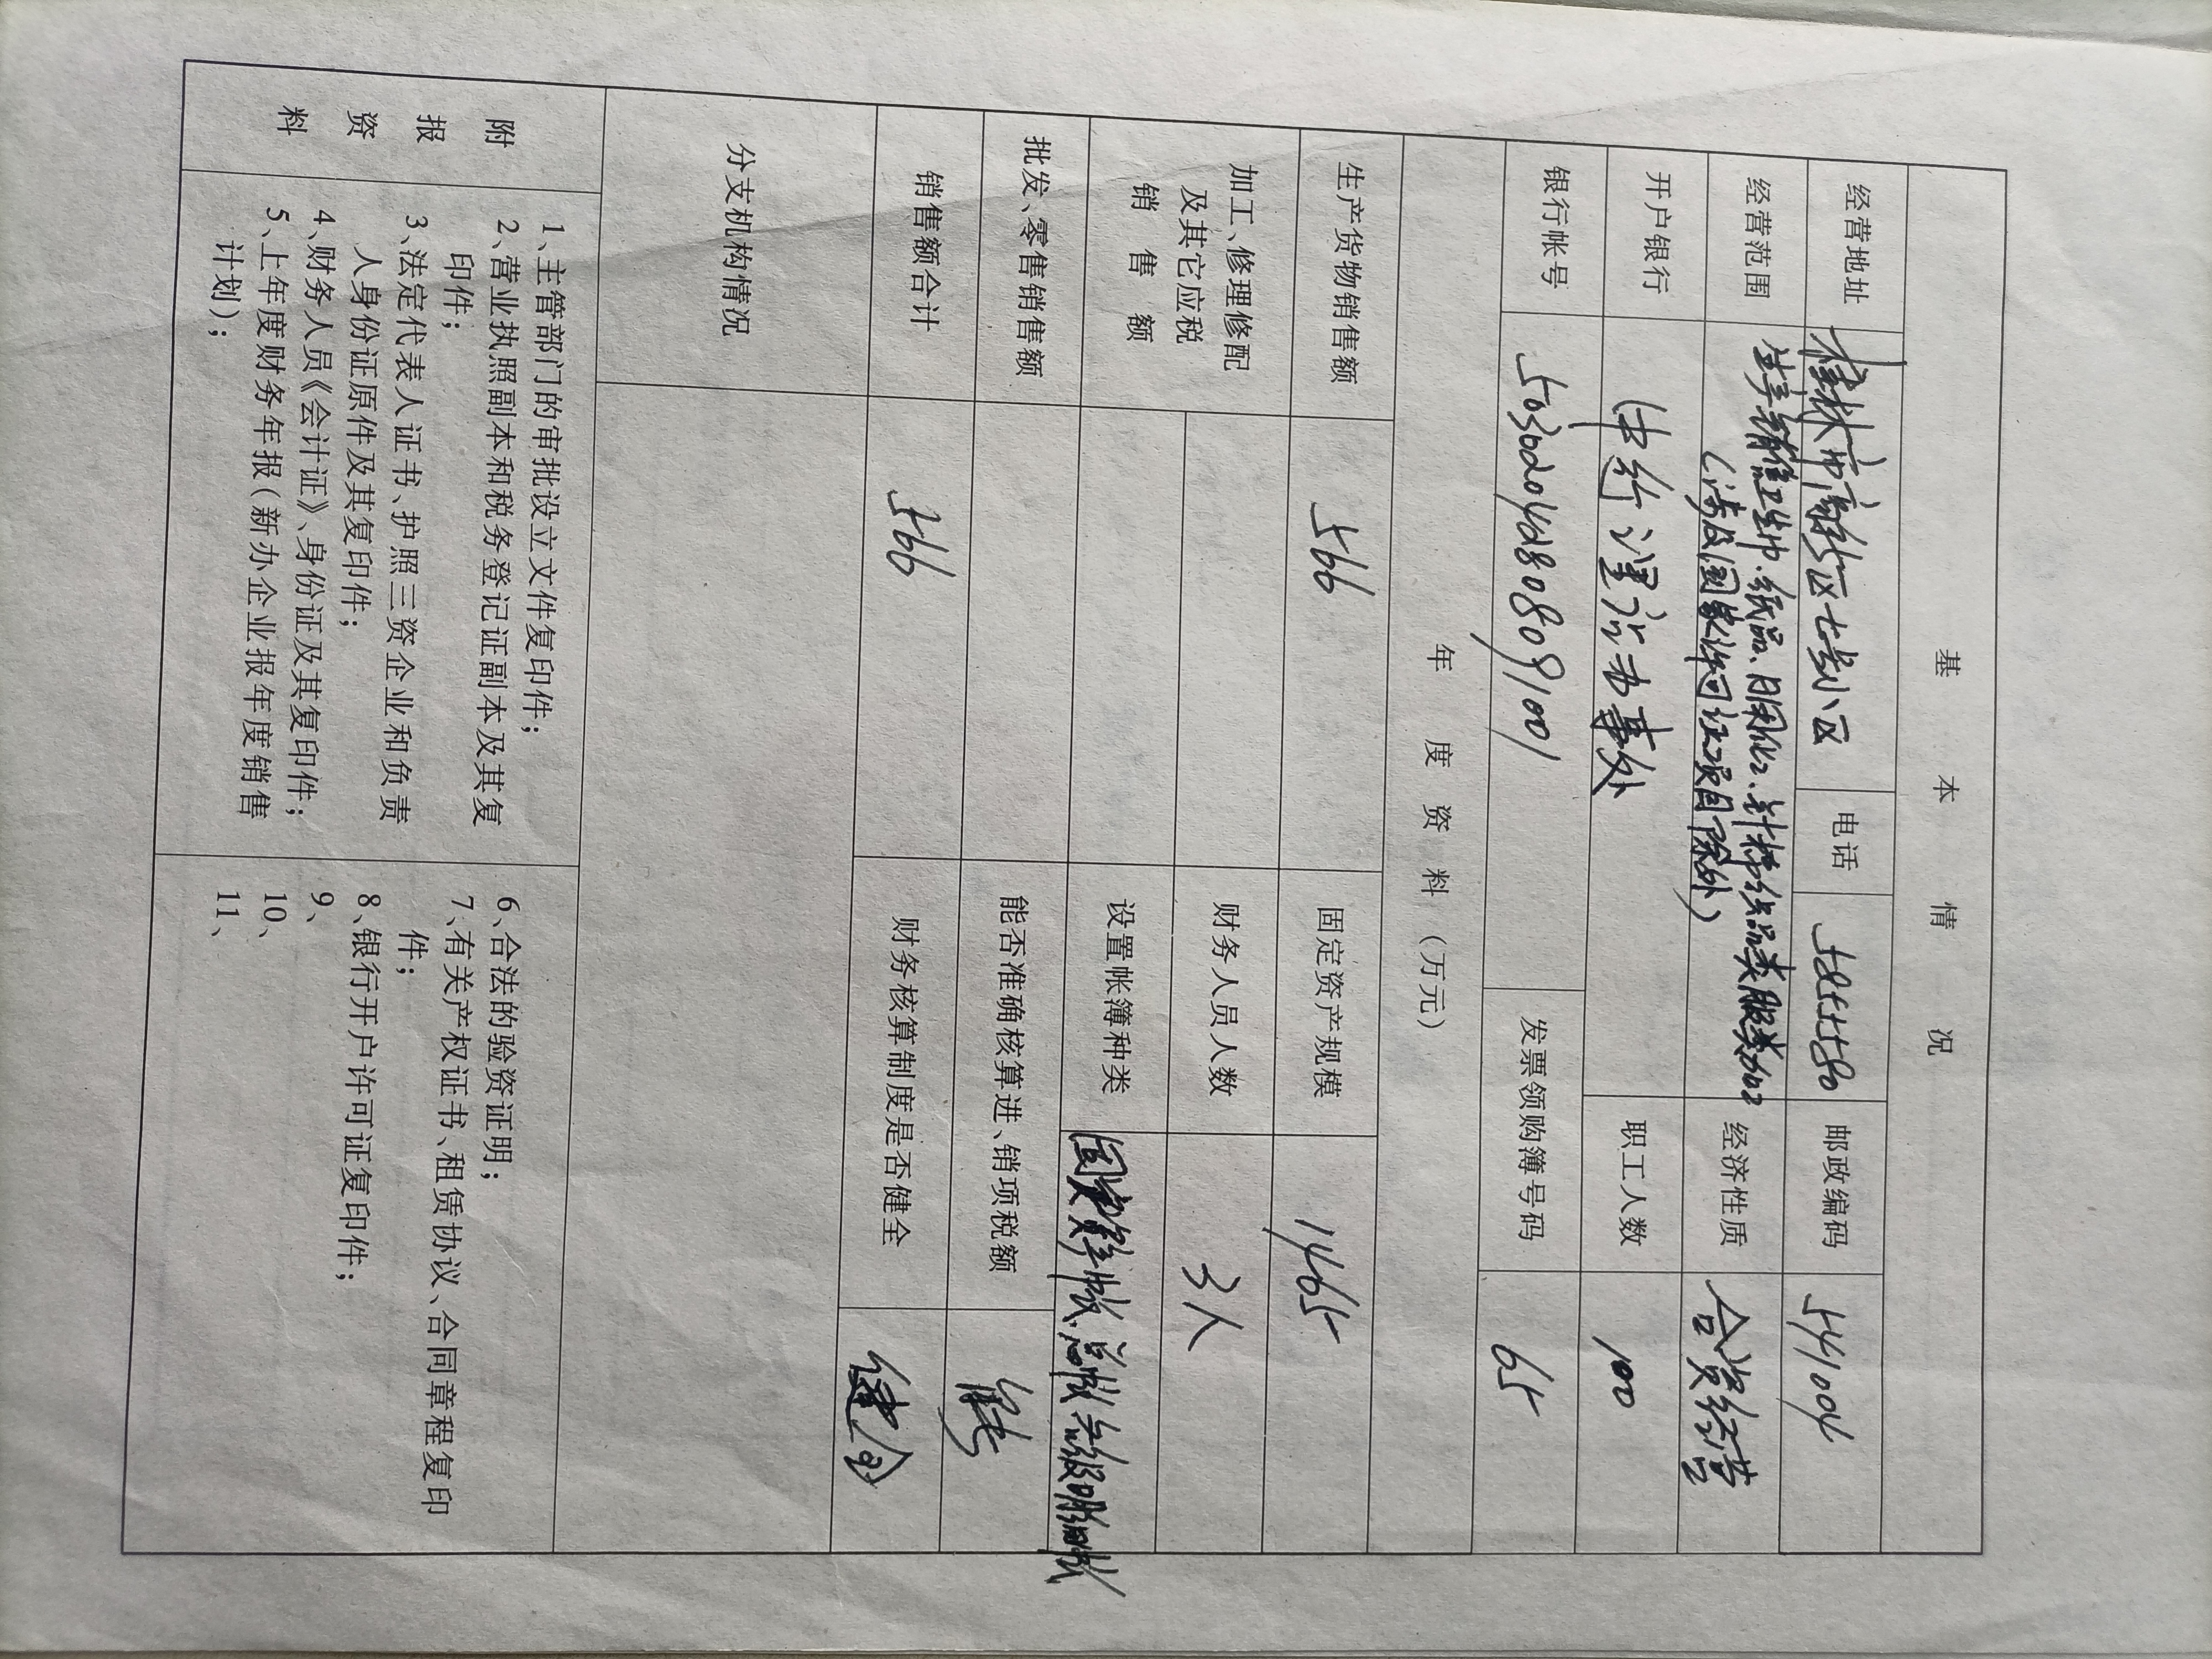 基本情况
经营地址 桂林市高新区七号小区 电话 5855580 邮政编码 541004
经营范围 生产销售卫生巾、纸品、日用化工、针棉织品类服装加工 经济性质 合资经营
(涉及国家许可证项目除外)
开户银行 中行漓江办事处 职工人数 100
银行帐号 发票领购簿号码 65
年度资料(万元)
生产货物销售额 566 固定资产规模 1465
加工、修理修配
及其它应税
销售额
财务人员人数 3人
设置帐簿种类 帐、总帐、级明细帐
批发、零售销售额 能否准确核算进、销项税额 能
销售额合计 566 财务核算制度是否健全 健全
分支机构情况
附报资料
1、主管部门的审批设立文件复印件;
2、营业执照副本和税务登记证副本及其复
印件;
3、法定代表人证书、护照三资企业和负责
人身份证原件及其复印件;
4、财务人员《会计证》、身份证及其复印件;
5、上年度财务年报(新办企业报年度销售
计划);
6、合法的验资证明;
7、有关产权证书、租赁协议、合同章程复印
件;
8、银行开户许可证复印件;
9、
10、
11、